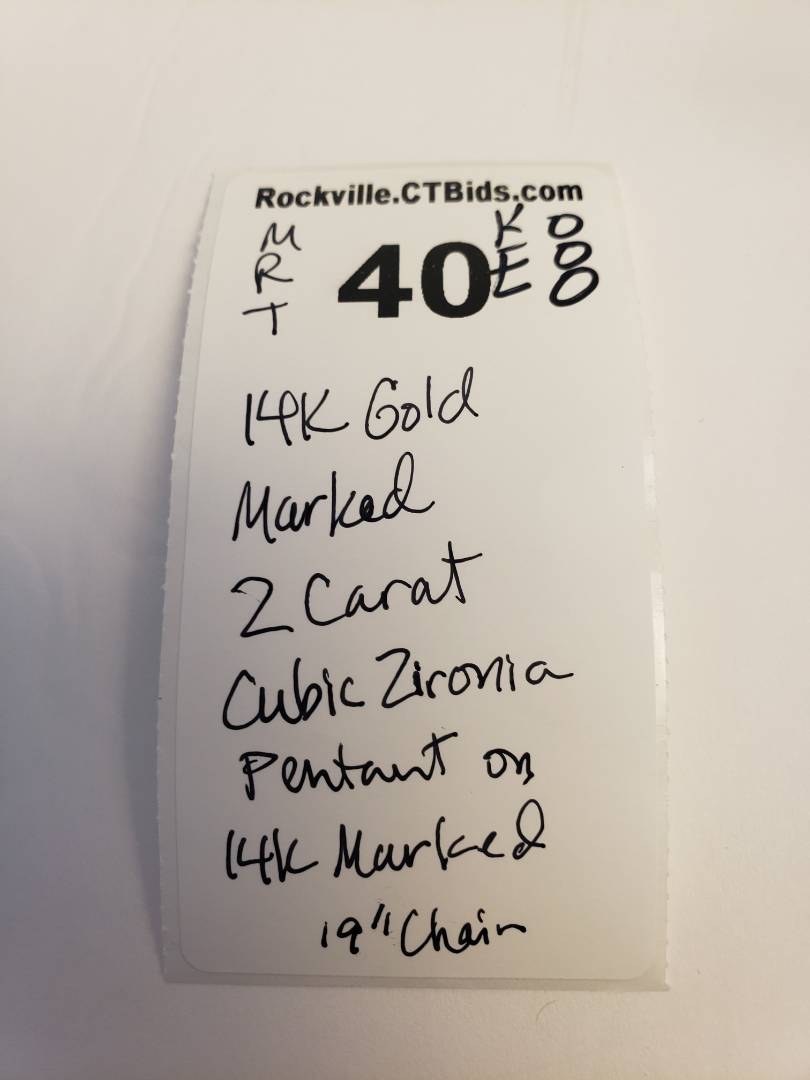 Rockville.CTBids.com
M
R
T
40
K
E
O
O
O
14K Gold
Marked
2 Carat
Cubic Zironia
Pentant on
14k Marked
19" Chain